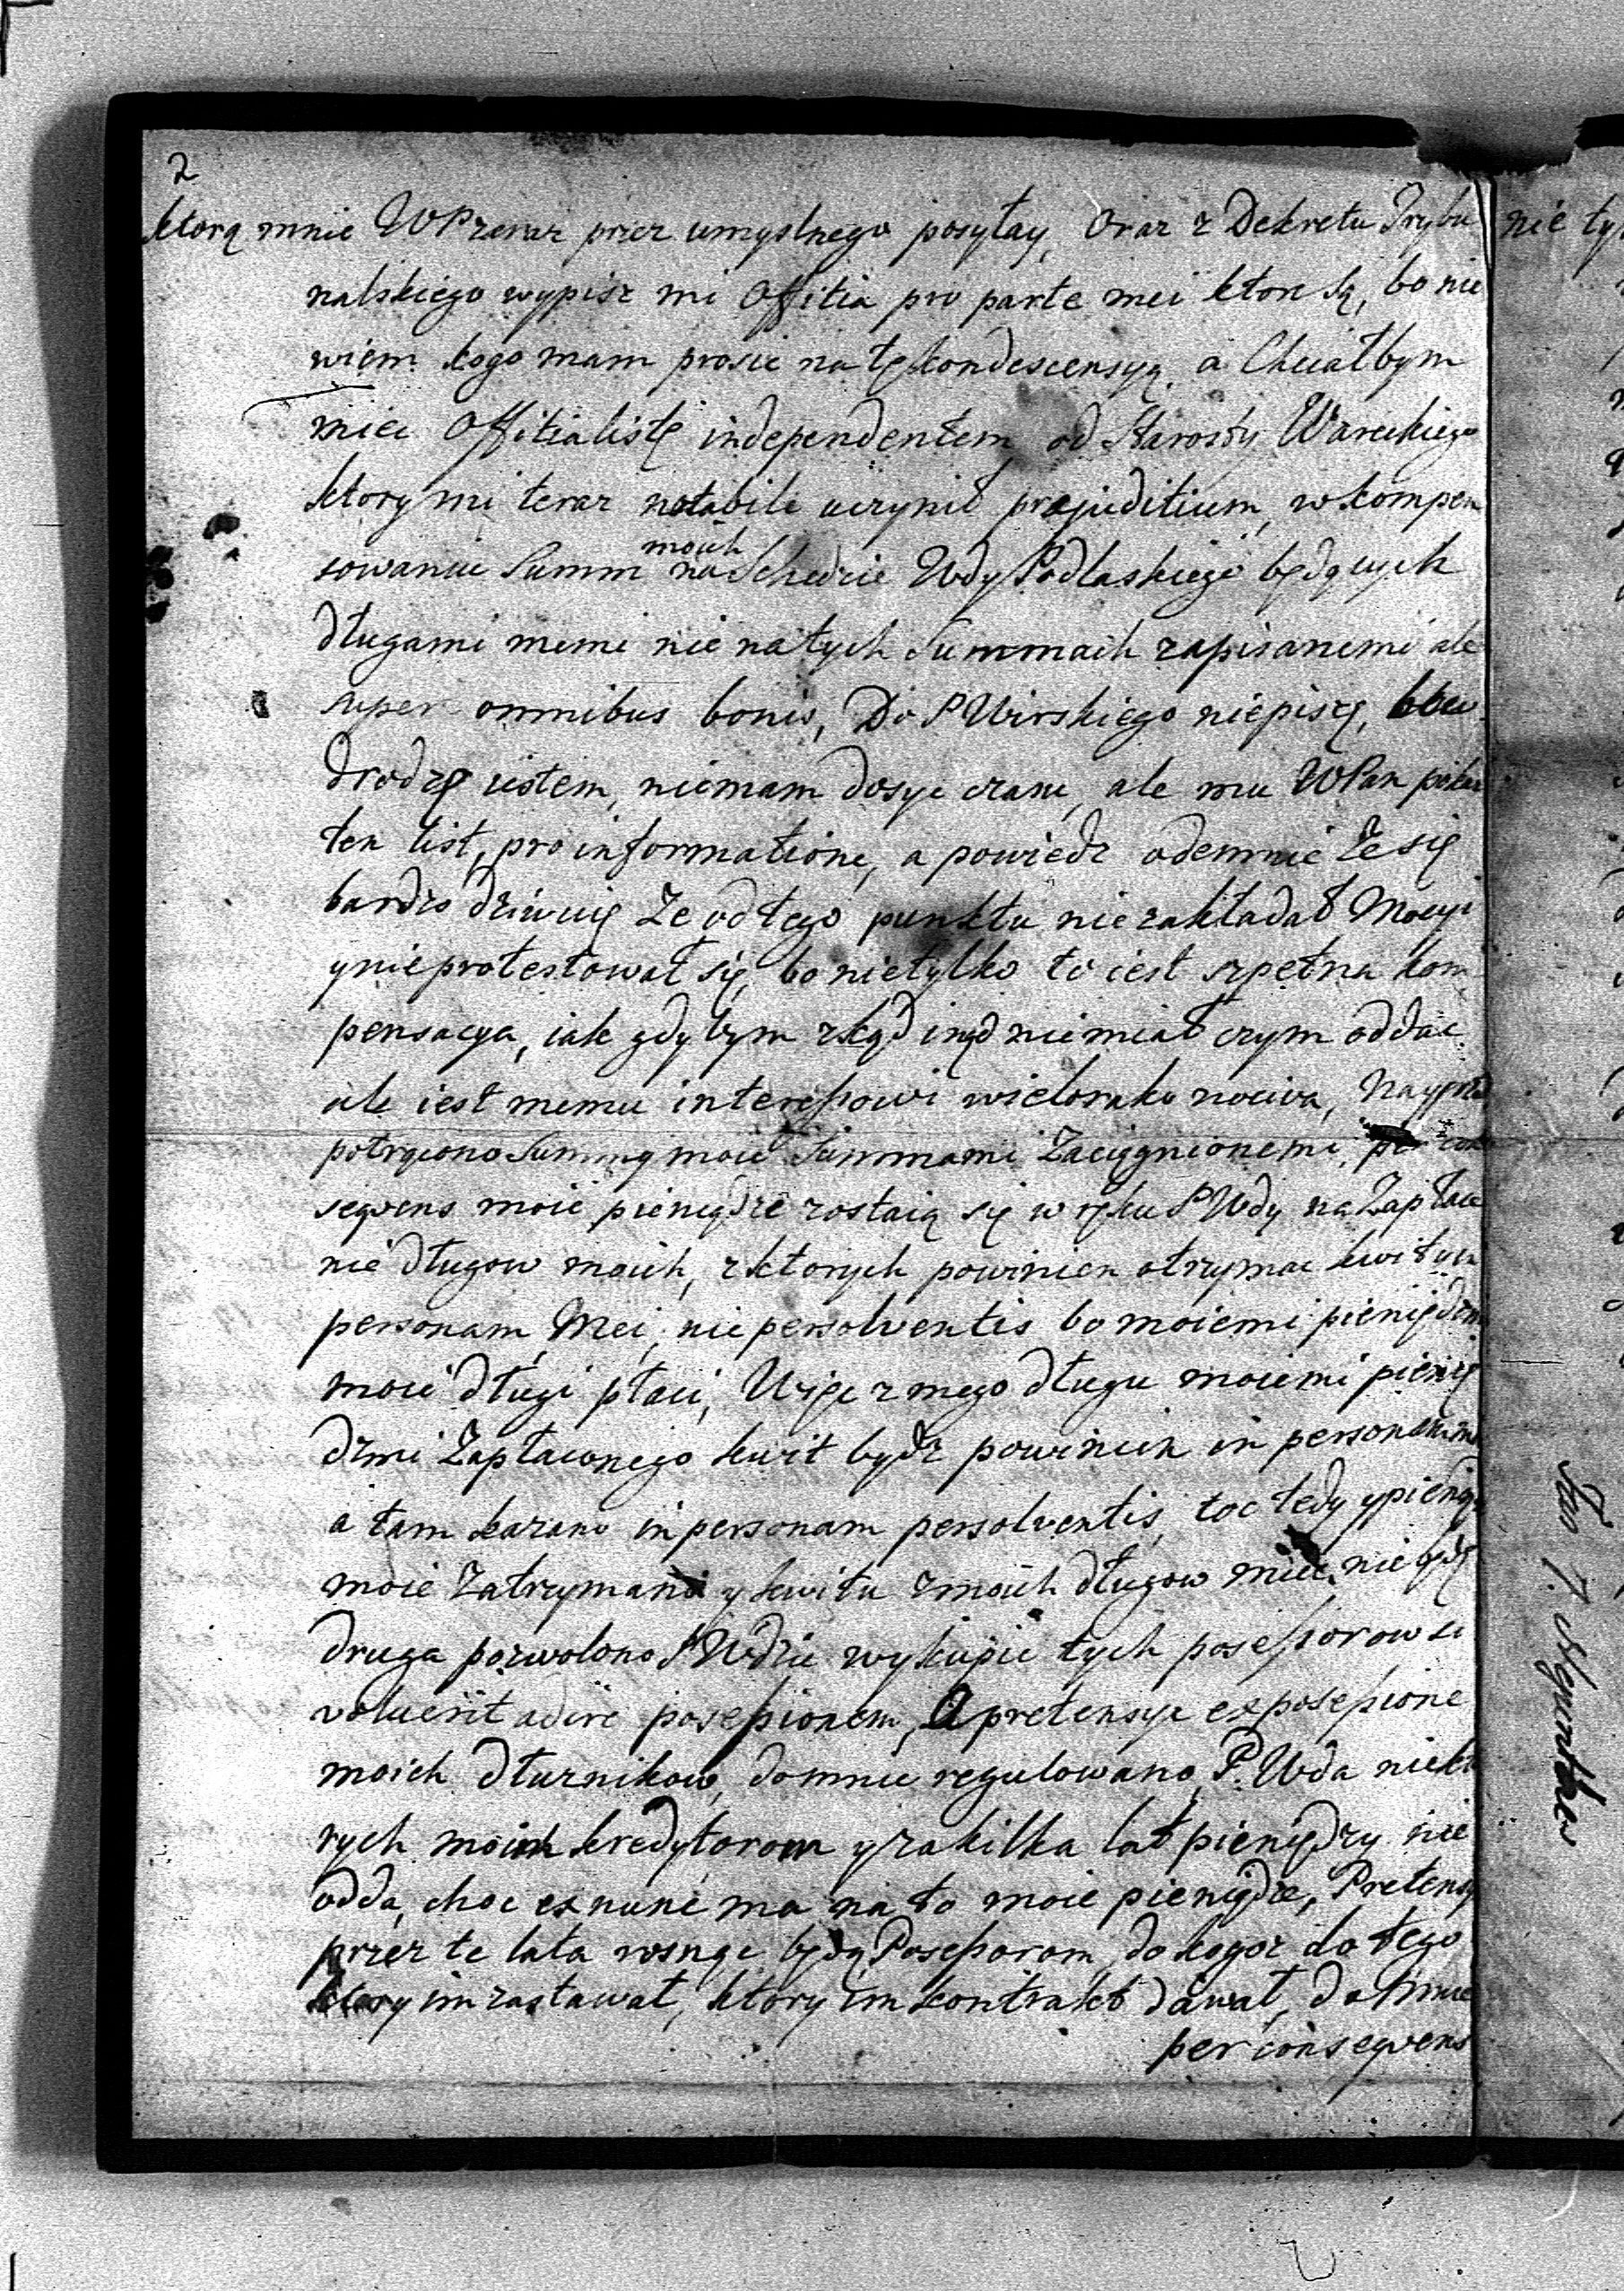 2
ktorą mnie WP zaraz przez umyslnego posyłay, Oraz z Dekretu Trybu
nalskiego wypisz mi Offitia pro parte mei ktore są, bo nie
wiem kogo mam prosic na tę kondescensyą, a Chciałbym
miec Offitialistę independentem od Starosty Wareckiego
ktory mi teraz notabile uczynił prejuditium, w kompen
sowaniu Summ moich na Schedzie Wdy Podlaskiego będących
długami memi nie na tych Summach zapisanemi ale
super omnibus bonis, Do P Wirskiego niepiszę, bo w
drodze iestem, niemam dosyc czasu, ale mu WPan pokaż
ten list, pro informatione, a powiedz odemnie że się
bardzo dziwuię że od tego punktu nie zakładał Mocyi
y nie protestował się, bo nietylko to iest szpetna kom
pensacya, iak gdybym zkąd inąd niemiał czym oddac
ale iest memu interessowi wielorako nociva, Nayprzod
potrącono Summy moie Summami Zaciągnionemi, per con
seqvens moie pieniądze zostaią się w ręku P Wdy na Zapłace
nie długow moich, z ktorych powinien otrzymac kwit in
personam Mei, nie persolventis bo moiemi pieniędzmi
moie długi płaci, Więc z mego długu moiemi pienię
dzmi Zapłaconego kwit bydz powinien in personam
a tam kazano in personam persolventis, toc tedy y pieniądze
moie Zatrzymano y kwitu z moich długow miec nie będę
druga pozwolono P Wdzie wykupic tych possessorow si
voluerit adire possessionem, A pretensye ex possessione
moich dłuznikow, do mnie regulowano, P. Wda niekto
rych moich kredytorom y za kilka lat pieniędzy nie
odda, choc ex nunc ma na to moie pieniądze, Pretensye
przez te lata rosnąc będą Possessorom, do kogoz do tego
ktory im zastawał, ktory im kontrakt dawał, do mnie
per conseqvens
nie ty